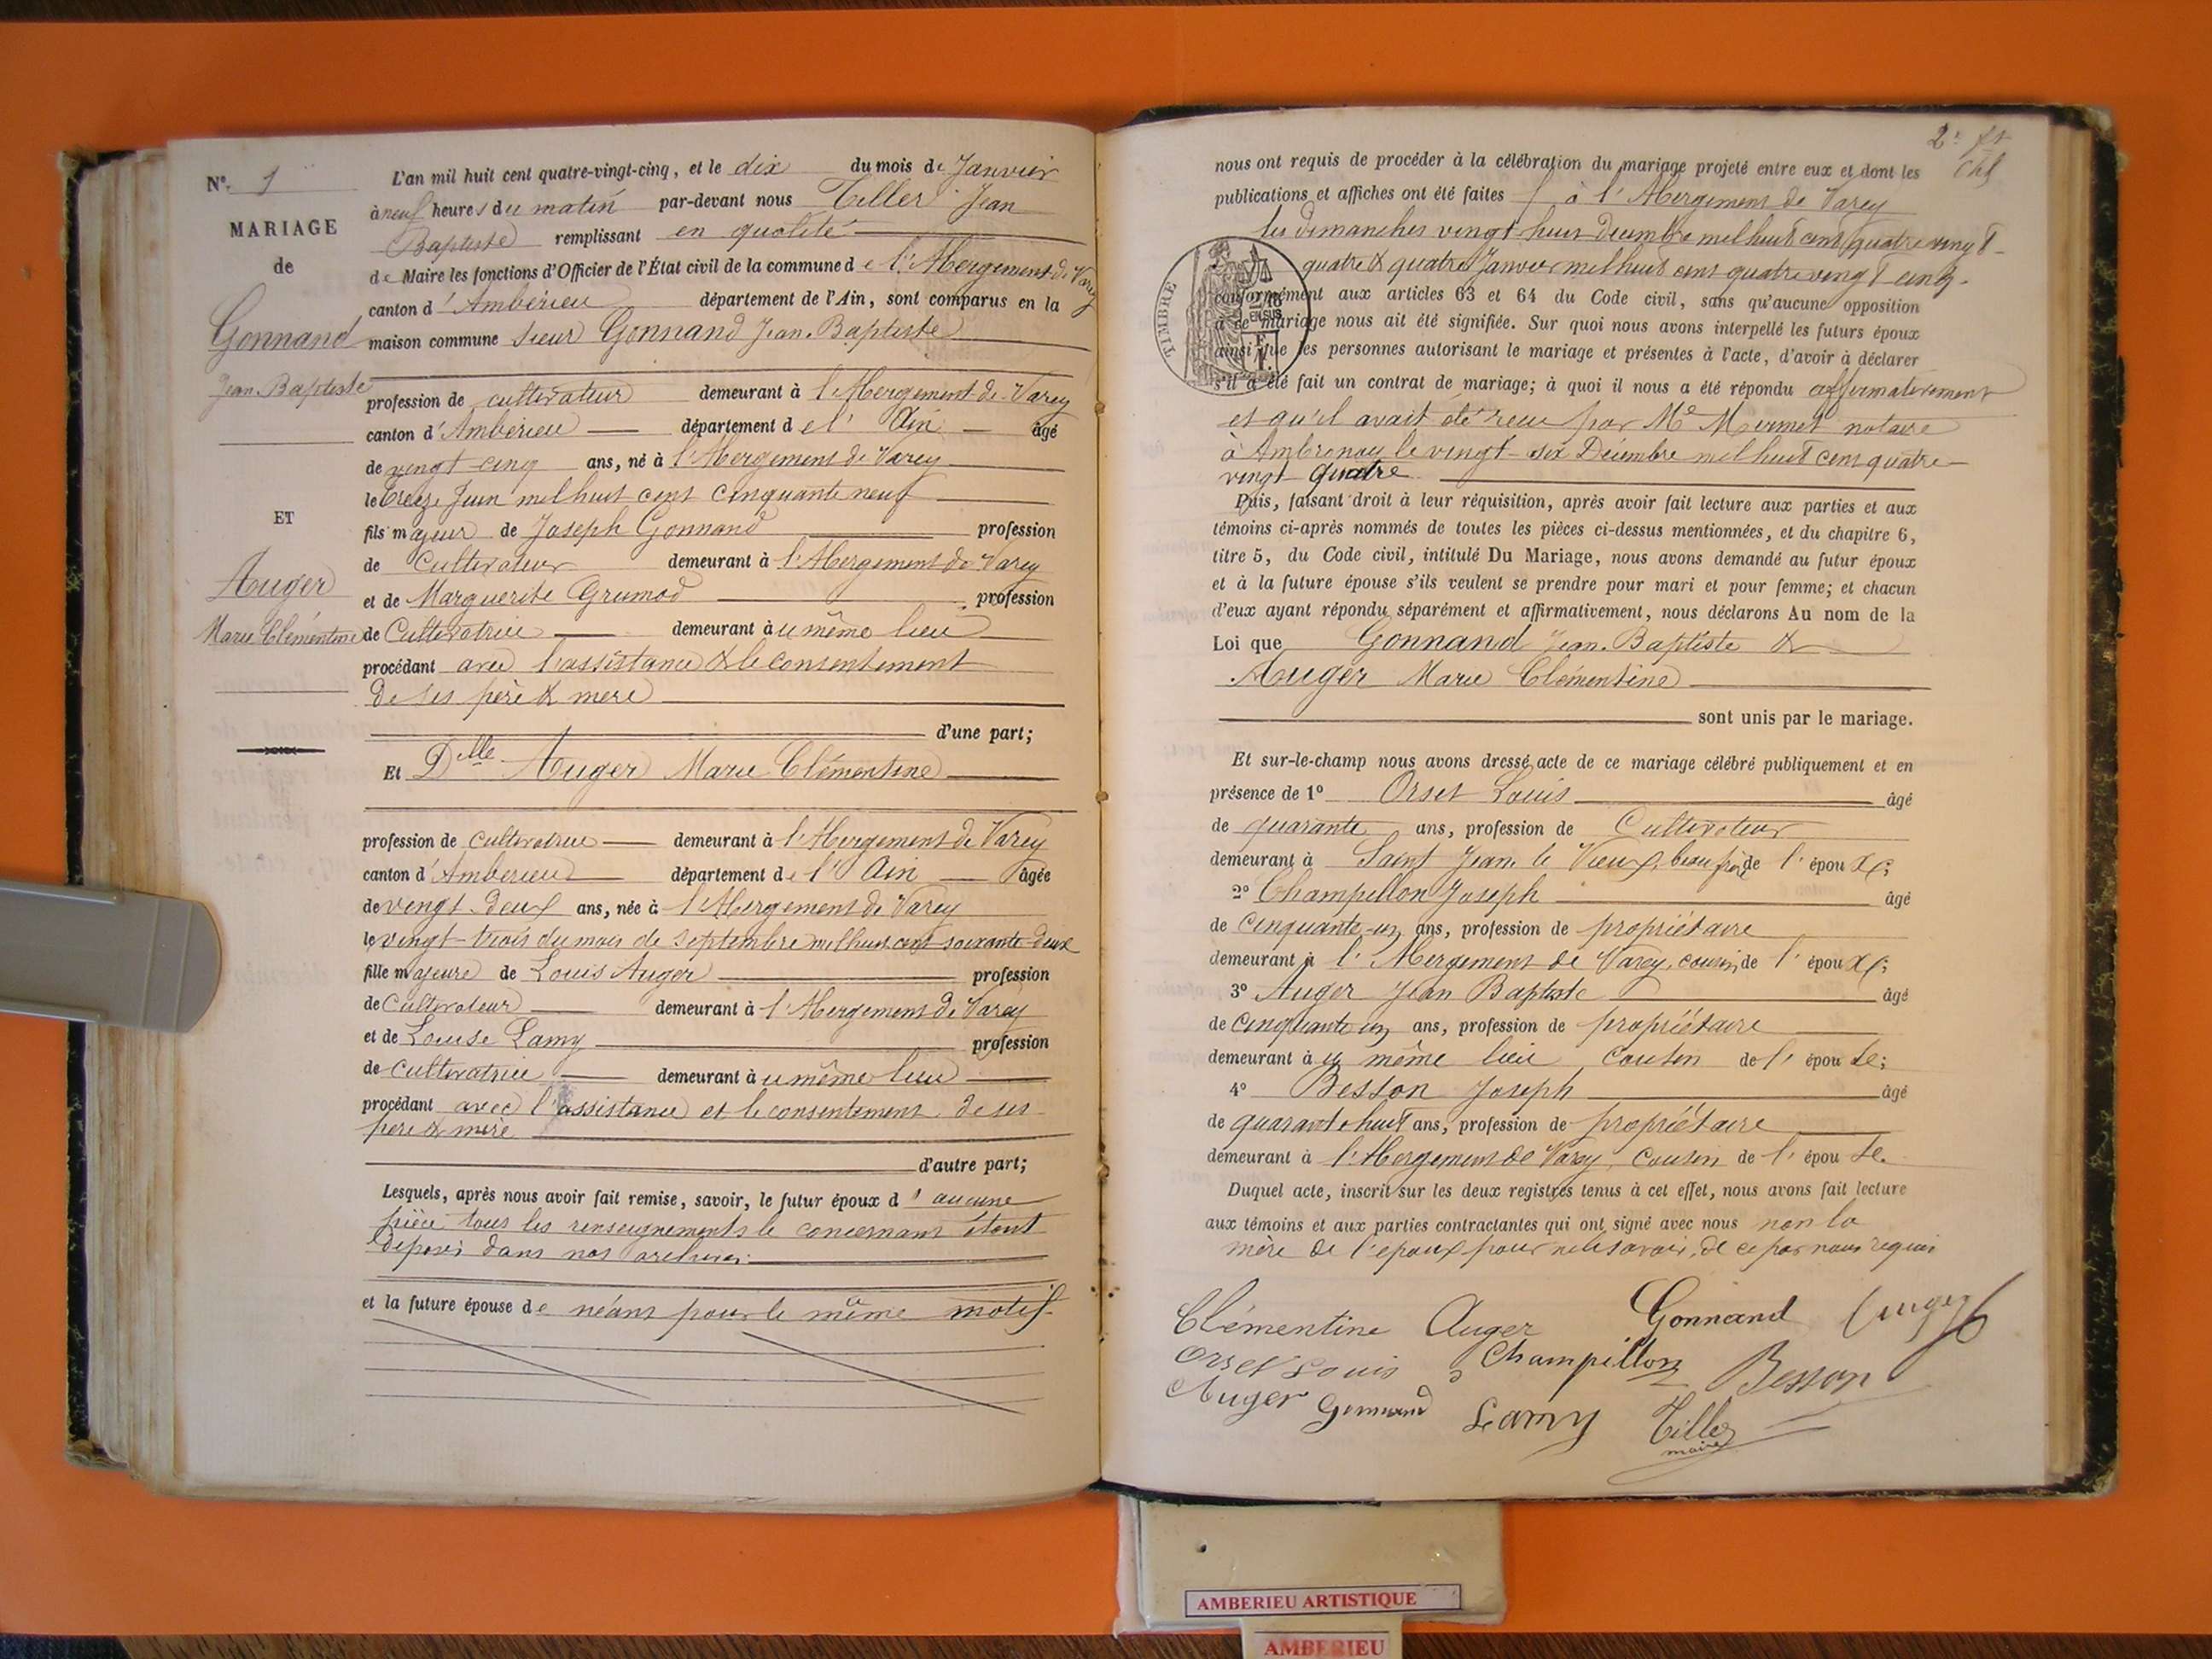 N° 1
MARIAGE
de
Gonnand
Jean-Baptiste
ET
Auger
Marie Clémentine
L'an mil huit cent quatre-vingt-cinq, et le dix du mois de Janvier
à neuf heures du matin par-devant nous Tiller Jean
Baptiste remplissant en qualité
de Maire les fonctions d'Officier de l'État civil de la commune de l'Abergement-de-Varey
canton d'Ambérieu département de l'Ain, sont comparus en la
maison commune sieur Gonnand Jean-Baptiste
profession de cultivateur demeurant à l'Abergement-de-Varey
canton d'Ambérieu département de l'Ain âgé
de vingt-cinq ans, né à l'Abergement de Varey
le treize Juin mil huit cent cinquante neuf
fils majeur de Joseph Gonnand profession
de Cultivateur demeurant à l'Abergement de Varey
et de Marguerite Grumod profession
de Cultivatrice demeurant au même lieu
procédant avec l'assistance & le consentement
de ses père & mère
d'une part;
Et Delle Auger Marie Clémentine
profession de cultivatrice demeurant à l'Abergement de Varey
canton d'Ambérieu département de l'Ain âgée
de vingt-deux ans, née à l'Abergement de Varey
le vingt-trois du mois de septembre mil huit cent soixante-deux
fille majeure de Louis Auger profession
de Cultivateur demeurant à l'Abergement de Varey
et de Louise Lamy profession
de cultivatrice demeurant au même lieu
procédant avec l'assistance et le consentement de ses
père & mère
d'autre part;
Lesquels, après nous avoir fait remise, savoir, le futur époux d'aucune
pièce tous les renseignements le concernant étant
déposés dans nos archives
et la future épouse de néant pour le même motif.
2e
nous ont requis de procéder à la célébration du mariage projeté entre eux et dont les
publications et affiches ont été faites à l'Abergement de Varey
les dimanches vingt huit Décembre mil huit cent quatre vingt-
quatre & quatre Janvier mil huit cent quatre vingt-cinq.
TIMBRE
conformément aux articles 63 et 64 du Code civil, sans qu'aucune opposition
à ce mariage nous ait été signifiée. Sur quoi nous avons interpellé les futurs époux
ainsi que les personnes autorisant le mariage et présentes à l'acte, d'avoir à déclarer
s'il a été fait un contrat de mariage; à quoi il nous a été répondu affirmativement
et qu'il avait été reçu par Me Mermet notaire
à Ambronay le vingt-six Décembre mil huit cent quatre-
vingt-quatre
Puis, faisant droit à leur réquisition, après avoir fait lecture aux parties et aux
témoins ci-après nommés de toutes les pièces ci-dessus mentionnées, et du chapitre 6,
titre 5, du Code civil, intitulé Du Mariage, nous avons demandé au futur époux
et à la future épouse s'ils veulent se prendre pour mari et pour femme; et chacun
d'eux ayant répondu séparément et affirmativement, nous déclarons Au nom de la
Loi que Gonnand Jean-Baptiste &
Auger Marie Clémentine
sont unis par le mariage.
Et sur-le-champ nous avons dressé acte de ce mariage célébré publiquement et en
présence de 1° Orset Louis âgé
de quarante ans, profession de Cultivateur
demeurant à Saint Jean le Vieux, beau frère de l'époux;
2° Champillon Joseph âgé
de cinquante-un ans, profession de propriétaire
demeurant à l'Abergement de Varey, cousin de l'époux;
3° Auger Jean Baptiste âgé
de cinquante un ans, profession de propriétaire
demeurant au même lieu cousin de l'épouse;
4° Besson Joseph âgé
de quarante huit ans, profession de propriétaire
demeurant à l'Abergement de Varey, cousin de l'épouse.
Duquel acte, inscrit sur les deux registres tenus à cet effet, nous avons fait lecture
aux témoins et aux parties contractantes qui ont signé avec nous non la
mère de l'époux pour ne le savoir, de ce par nous requis
Clémentine Auger Gonnand Auger
Orset Louis Champillon Besson
Auger Gonnand Lamy Tiller
maire
AMBERIEU ARTISTIQUE
AMBERIEU